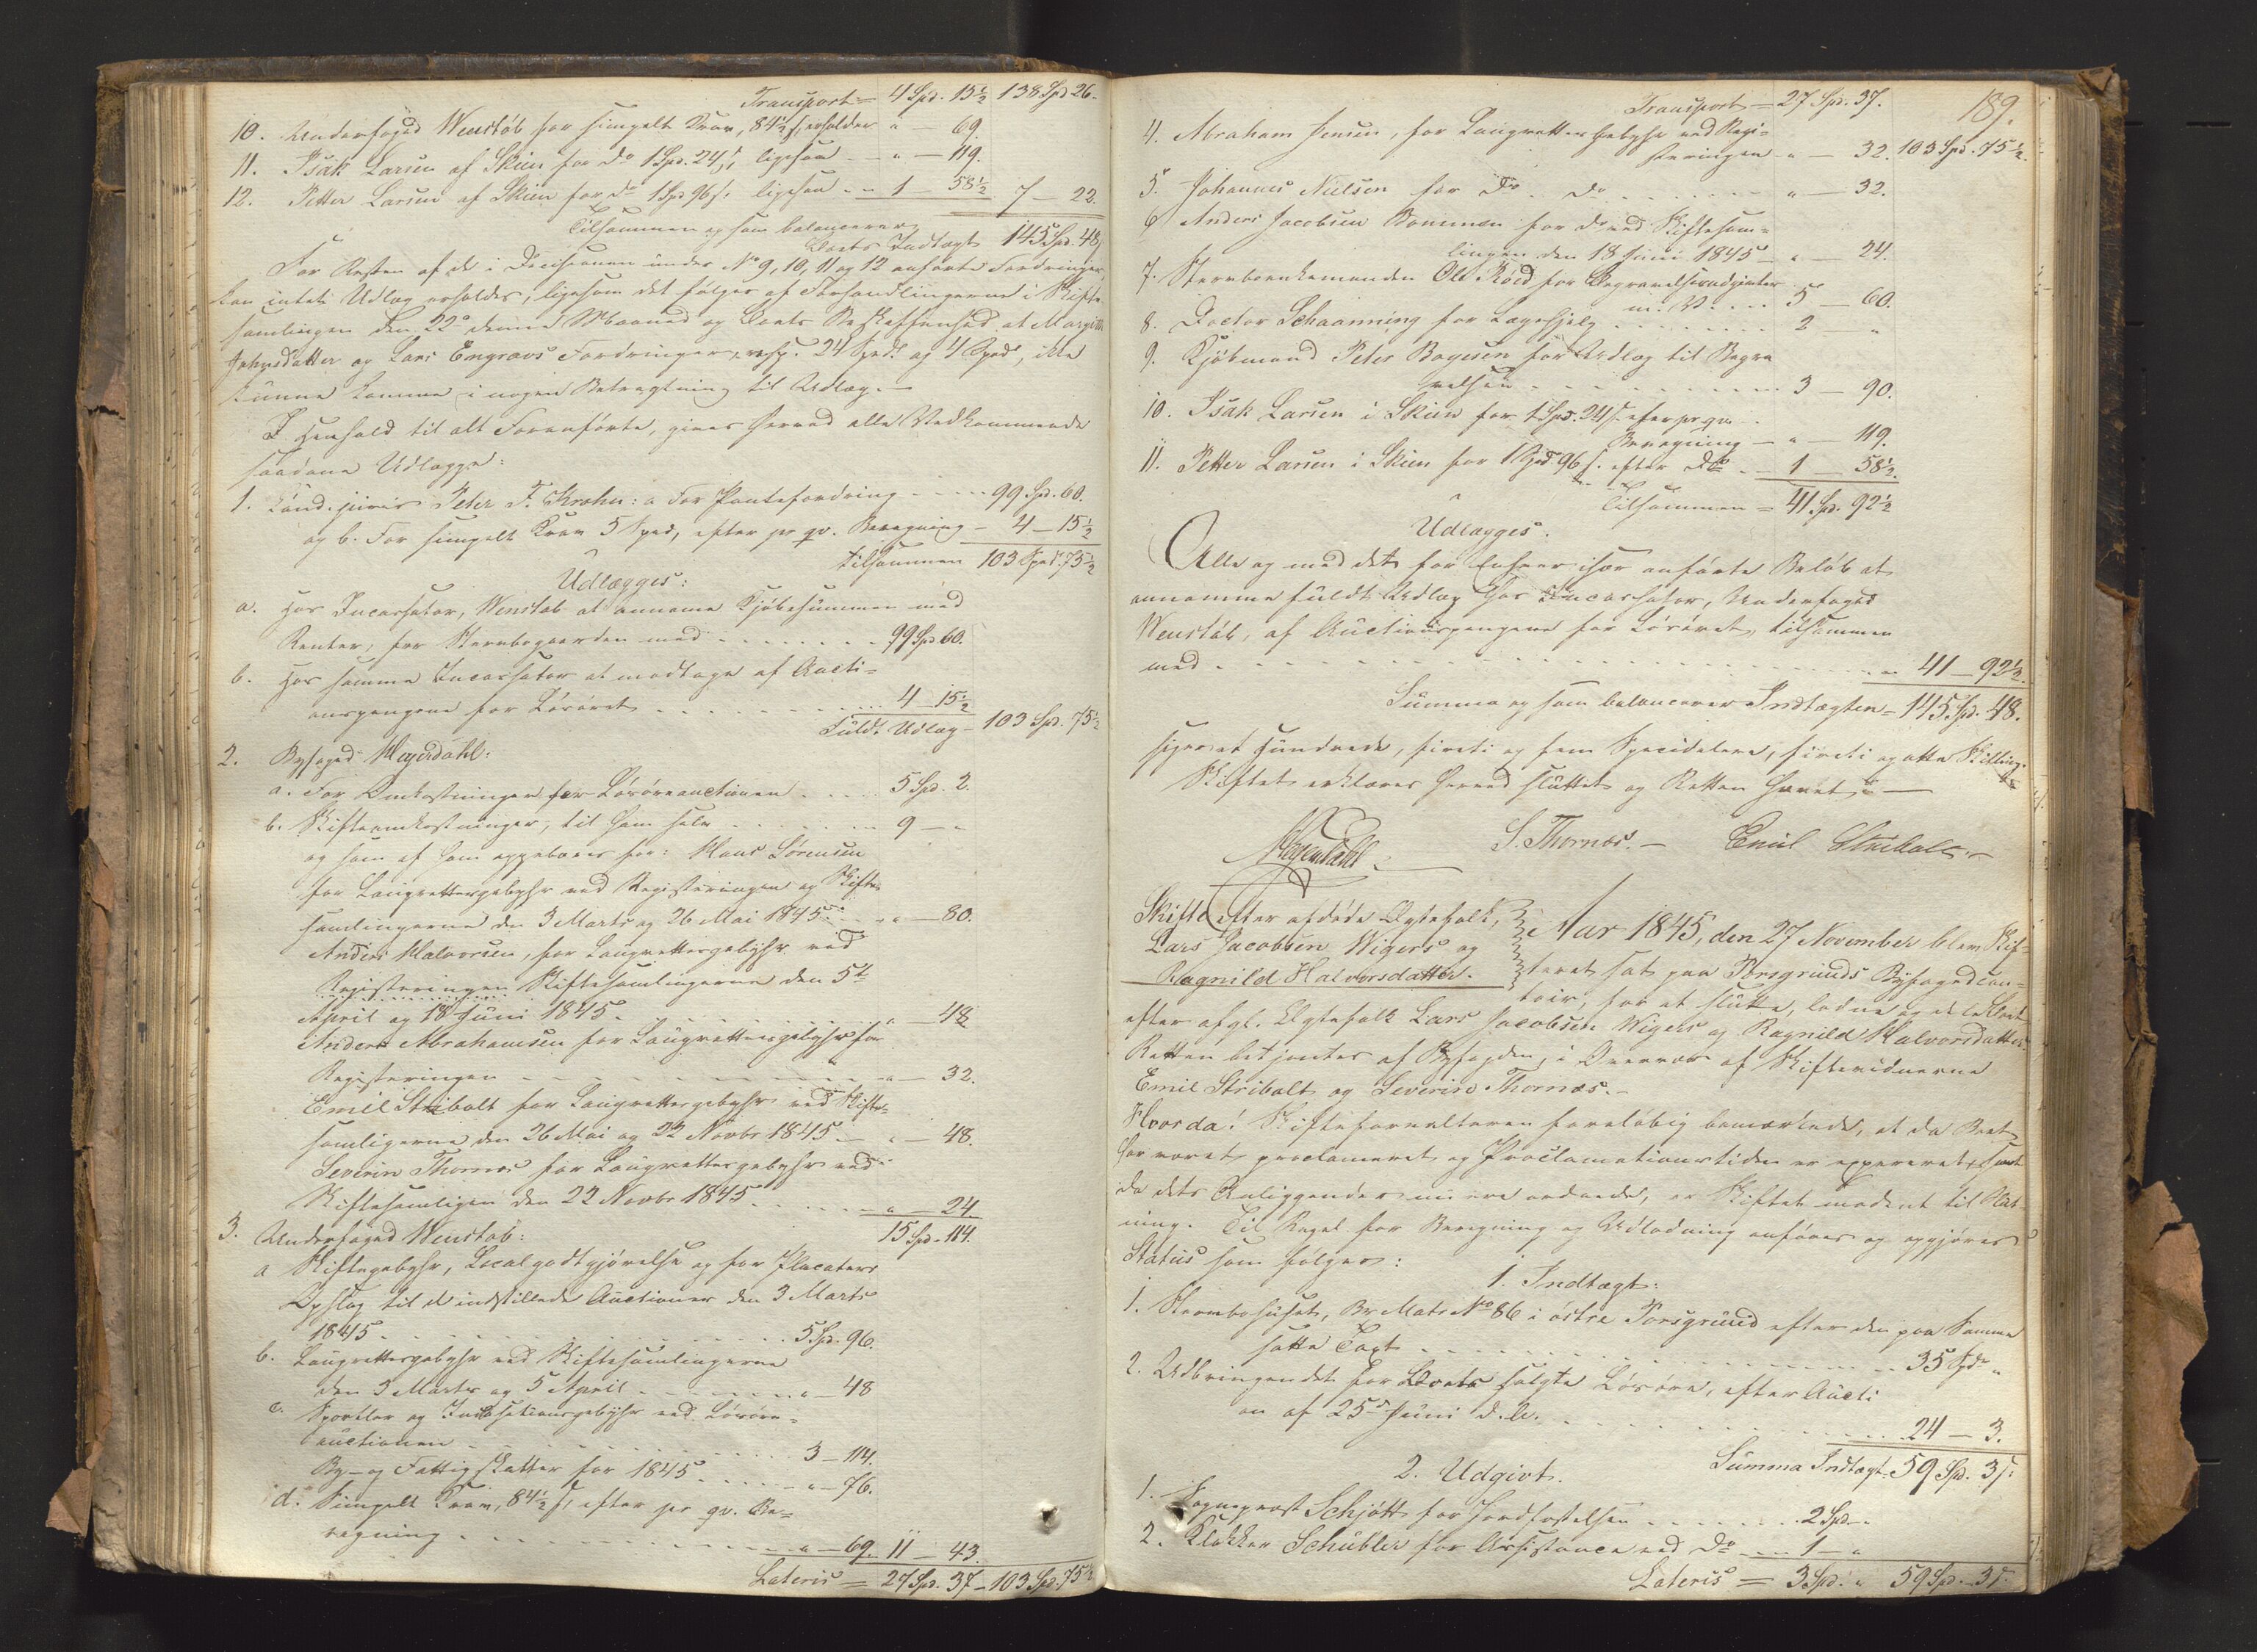 Transport = 4 Spd. 13½ 138 Spd 26.
10. Underfoged Wenstøb for simpelt Krav, 84½ s, erholder " — 69.
11. Isak Larsen af Skien for do 1 Spd. 24 s, ligesaa " — 119.
12. Petter Larsen af Skien for do 1 Spd 96 s: ligesaa 1 — 58½ 7 — 22.
Tilsammen og som balancerer
Boets Indtægt 145 Spd. 48
For Resten af de i Decisionen under No 9, 10, 11 og 12 anførte Fordringer,
kan intet Udlæg erholdes, ligesom det følger af Forhandlingerne i Skifte
samlingen den 22de denne Maaned og Boets Beskaffenhed at Margith
Johnsdatter og Lars Engravs Fordringer, resp. 24 Spd. og 4 Spd, ikke
kunne komme i nogen Betragtning til Udlæg. —
I Henhold til alt Foranførte, gives herved alle Vedkommende
saadane Udlægge:
1. Cand. juris Peter F. Krohn: a For Pantefordring 99 Spd. 60.
og b. For simpelt Krav 5 Spd, efter pr qv. Beregning — 4 — 15½
tilsammen 103 Spd. 75½
Udlægges:
a. Hos Incassator, Wenstøb at annamme Kjøbesummen med
Renter, for Stervbogaarden med 99 Spd 60.
b. Hos samme Incassator at modtage af Aucti-
onspengene for Løsøret 4 — 15½
Fuldt Udlæg — 103 Spd. 75½
2. Byfoged Meyerdahl:
a. For Omkostninger for Løsøreauctionen 5 Spd. 2.
b. Skifteomkostninger, til ham selv 9 — "
og som af ham oppebæres for: Hans Sørensen
for Laugrettesgebyhr ved Registeringen og Skifte-
samlingerne den 3 Marts og 26 Mai 1845 " — 80.
Anders Halvorsen, for Laugrettesgebyhr ved
Registeringen Skiftesamlingerne den 5te
April og 18 Juni 1845 " — 48
Anders Abrahamsen for Laugrettesgebyhr for
Registeringen " — 32.
Emil Stribolt for Laugrettesgebyhr ved Skifte-
samligerne den 26 Mai og 22 Novbr 1845 — " — 48.
Severin Thornæs for Laugrettesgebyhr ved
Skiftesamligen den 22 Novbr 1845 " — 24.
15 Spd. 114.
3. Underfoged Wenstøb:
a Skiftegebyhr, Localgodtgjørelse og for Placaters
Opslag til de indstillede Auctioner den 3 Marts
1845 5 Spd. 96.
b. Laugrettesgebyhr ved Skiftesamlingerne
den 3 Marts og 5 April " — 48
c. Sportler og Incassationsgebyhr ved Løsøre-
auctionen 3 — 114.
By- og Fattigskatter for 1845 " — 76.
d. Simpelt Krav, 84½ s, efter pr qv. Be-
regning " — 69. 11 — 43.
Lateris = 27 Spd. 37 — 103 Spd. 75½
189.
Transport — 27 Spd. 37.
4. Abraham Jensen, for Laugrettesgebyhr ved Regi-
steringen " — 32. 103 Spd. 75½.
5. Johannes Nielsen for Do. Do " — 32.
6 Anders Jacobsen Rommen for Do ved Skiftesam-
lingen den 18 Juni 1845 " — 24.
7. Stervboenkemanden Ole Röed for Begravelsesudgivter
m. V. 5 — 60.
8. Doctor Schaanning for Lægehjelp 2 — "
9. Kjøbmand Peter Boyesen for Udlæg til Begra
velsen 3 — 90.
10. Isak Larsen i Skien for 1 Spd. 24 s. efter pr qv
Beregning — " — 119.
11. Petter Larsen i Skien for 1 Spd 96 s. efter Do 1 — 58½.
Tilsammen = 41 Spd. 92½
Udlægges.
Alle og med det for Enhver især anførte Beløb at
annamme fuldt Udlæg hos Incassator, Underfoged
Wenstøb, af Auctionspengene for Løsøret, tilsammen
med 41 — 92½.
Summa og som balancerer Indtægten — 145 Spd. 48.
siger et Hundrede, firti og fem Speciedalere, firti og otte Skilling.
Skiftet erklæres herved sluttet og Retten hævet. —
Meyerdahl. S. Thornæs. — Emil Stribolt. —
Skifte efter afdøde Ægtefolk,
Lars Jacobsen Wigers og
Ragnild Halvorsdatter.
Aar 1845, den 27 November blev Skif-
teret sat paa Porsgrunds Byfogedcon-
toir, for at slutte, lodne og dele Boet
efter afgl. Ægtefolk Lars Jacobsen Wigers og Ragnild Halvorsdatter.
Retten betjentes af Byfogden, i Overvær af Skiftevidnerne
Emil Stribolt og Severin Thornæs. —
Hvorda! Skifteforvalteren foreløbig bemærkede, at da Boet
har været proclameret og Proclamationstiden er expireret, samt
da dets Anliggender nu ere ordnede, er Skiftet modent til Slut-
ning. Til Regel for Beregning og Udlodning anføres og opgjøres
Status som følger:
1. Indtægt:
1. Stervbohuset, Br Matr No 86 i østre Porsgrund efter den paa Samme
satte Taxt 35 Spd "
2. Udbringendet for Boets solgte Løsøre, efter Aucti
on af 25de Juni d. A. 24 — 3.
Summa Indtægt 59 Spd. 3 s:
2. Udgivt.
1. Sogneprest Schjøtt for Jordfæstelsen 2 Spd —
2. Klokker Schübler for Assistance ved Do 1 — "
Lateris = 3 Spd. " 59 Spd. — 3 s.